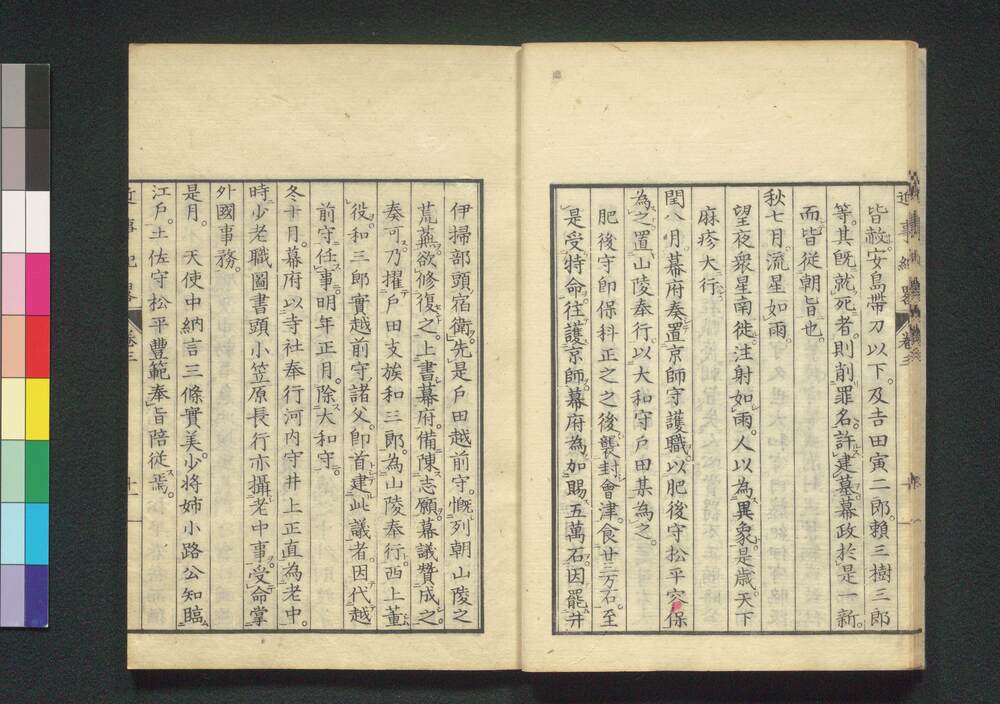 皆赦。安島帶刀以下。及吉田寅二郎。賴三樹三郎
等。其既就死者。則削罪名。許建墓。幕政於是一新。
而皆從朝旨也。
秋七月。流星如雨。
望夜衆星南徙。注射如雨。人以為異象。是歳。天下
麻疹大行。
閏八月。幕府奏置京師守護職。以肥後守松平容保
為之。置山陵奉行。以大和守戸田某為之。
肥後守卽保科正之之後。襲封會津。食廿三万石。至
是受特命。往護京師。幕府為加賜五萬石。因罷井
伊掃部頭宿衛。先是戸田越前守。慨列朝山陵之
荒蕪。欲修復之。上書幕府。備陳志願。幕議贊成之。
奏可。乃擢戸田支族和三郎。為山陵奉行。西上董
役。和三郎實越前守諸父。卽首建此議者。因代越
前守任事。明年正月。除大和守。
冬十月。幕府以寺社奉行河内守井上正直為老中。
時少老職圖書頭小笠原長行亦攝老中事。受命掌
外國事務。
是月。天使中納言三條實美。少将姉小路公知臨
江戸。土佐守松平豐範奉旨陪從焉。
近事紀畧 卷三 十一